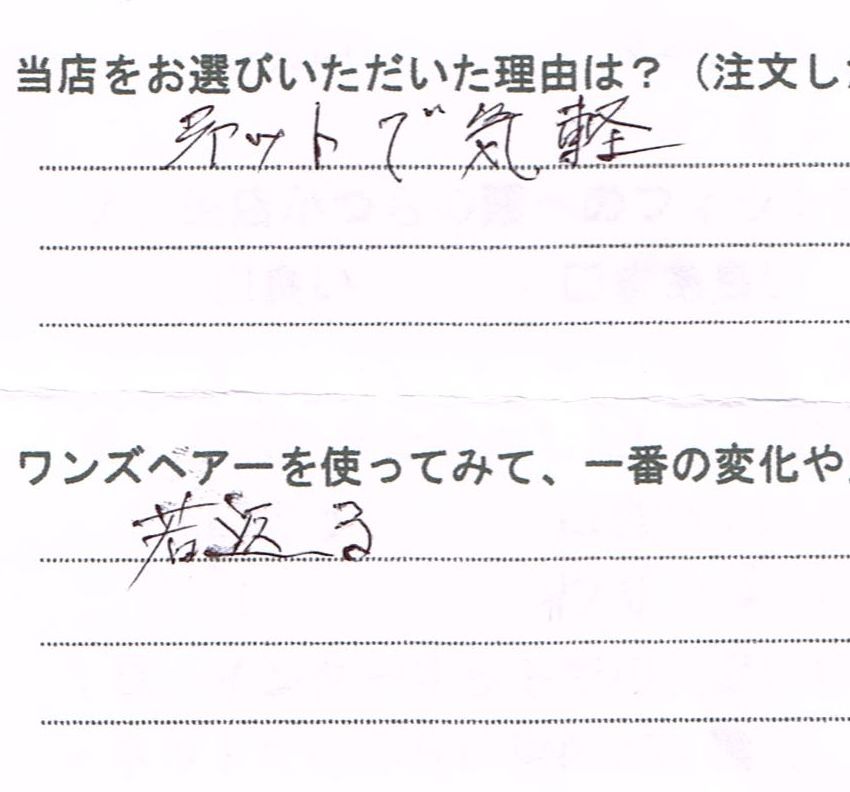 当店をお選びいただいた理由は？（注文し
ネットで気軽
ワンズヘアーを使ってみて、一番の変化や
若返る